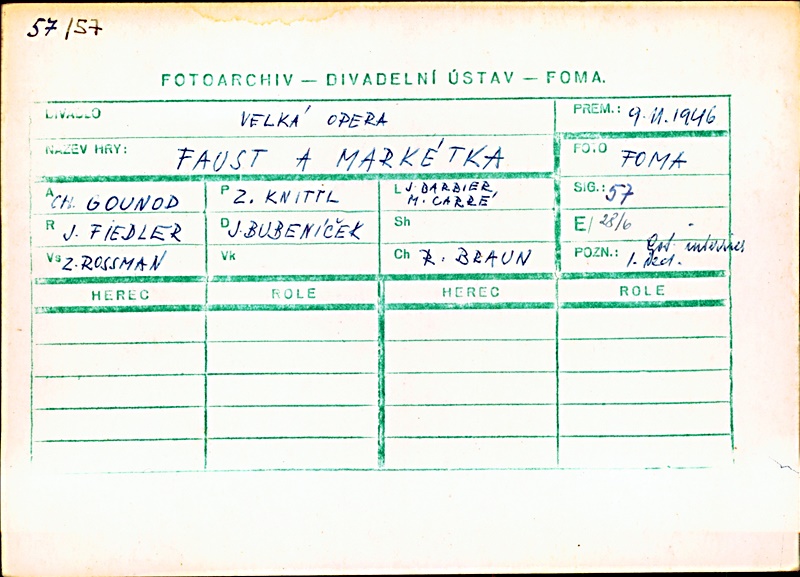 57/57
FOTOARCHIV — DIVADELNÍ ÚSTAV — FOMA.
DIVADLO VELKÁ OPERA PREM.: 9.11.1946
NÁZEV HRY: FAUST A MARKÉTKA FOTO FOMA
A CH. GOUNOD P Z. KNITTL L J. BARBIER, M. CARRÉ SIG.: 57
R J. FIEDLER D J. BUBENÍČEK Sh E/ 28/6
Vs Z. ROSSMAN Vk Ch R. BRAUN POZN.: Got. interieur
1. děj.
HEREC ROLE HEREC ROLE